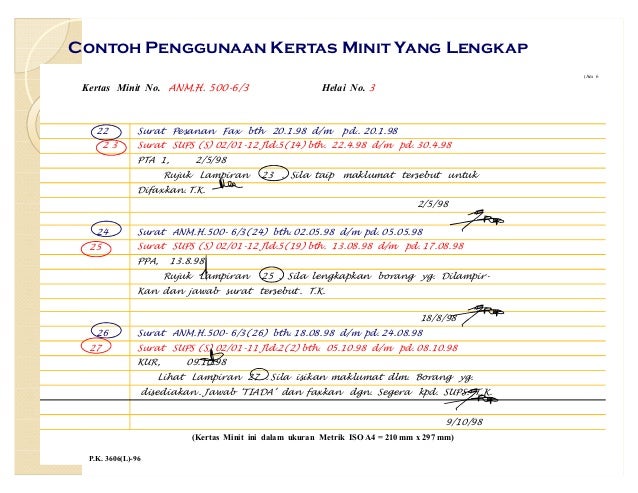 CONTOH PENGGUNAAN KERTAS MINIT YANG LENGKAP
Kertas Minit No. ANM.H. 500-6/3 Helai No. 3
22 Surat Pesanan Fax bth 20.1.98 d/m pd.. 20.1.98
23 Surat SUPS (S) 02/01-12 fld.5(14) bth. 22.4.98 d/m pd. 30.4.98
PTA 1, 2/5/98
Rujuk Lampiran 23 . Sila taip maklumat tersebut untuk
Difaxkan. T.K.
2/5/98
24 Surat ANM.H.500- 6/3(24) bth. 02.05.98 d/m pd. 05.05.98
25 Surat SUPS (S) 02/01-12 fld.5(19) bth. 13.08.98 d/m pd. 17.08.98
PPA, 13.8.98
Rujuk Lampiran 25 Sila lengkapkan borang yg. Dilampir-
Kan dan jawab surat tersebut. T.K.
18/8/98
26 Surat ANM.H.500- 6/3(26) bth. 18.08.98 d/m pd. 24.08.98
27 Surat SUPS (S) 02/01-11 fld.2(2) bth. 05.10.98 d/m pd. 08.10.98
KUR, 09.10.98
Lihat Lampiran 27 Sila isikan maklumat dlm. Borang yg.
disediakan. Jawab 'TIADA' dan faxkan dgn. Segera kpd. SUPS. T.K.
9/10/98
(Kertas Minit ini dalam ukuran Metrik ISO A4 = 210 mm x 297 mm)
P.K. 3606(L)-96